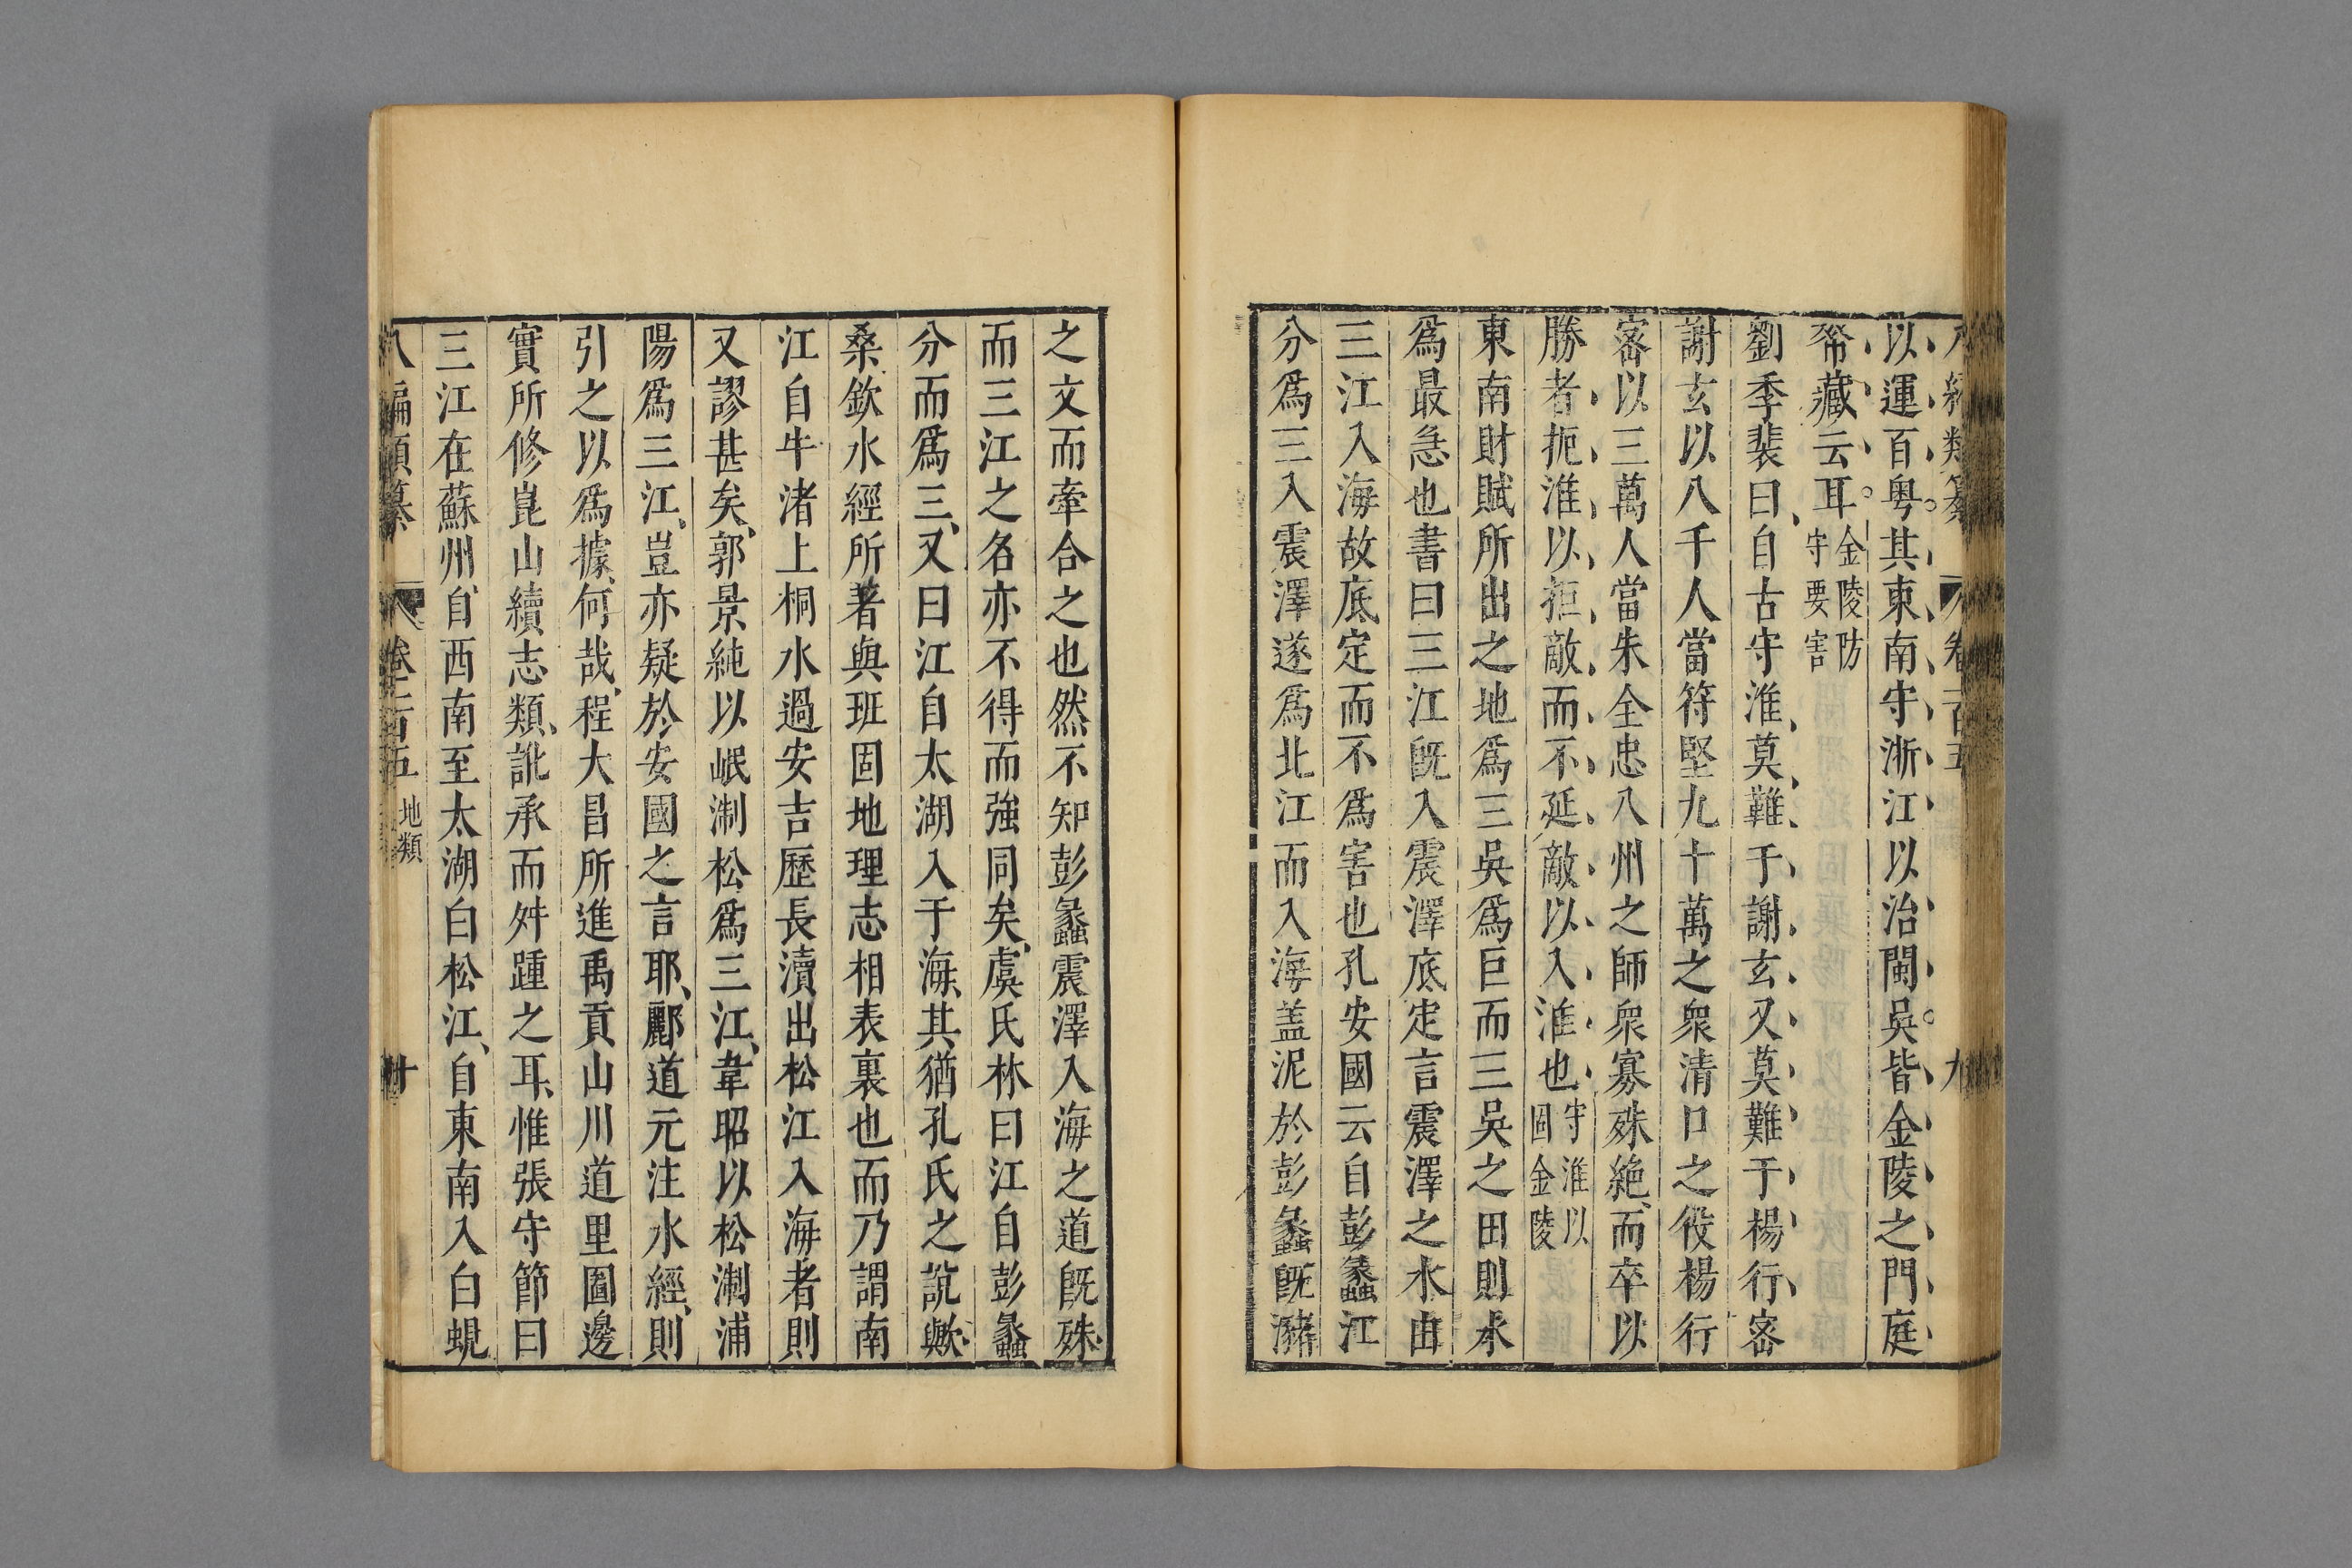 以運百粤其東南守浙江以治閩吳皆金陵之門庭
帑藏云耳金陵防守要害
劉季裴曰自古守淮莫難于謝玄又莫難于楊行宻
謝玄以八千人當符堅九十萬之衆清口之役楊行
宻以三萬人當朱全忠八州之師衆寡殊絶而卒以
勝者扼淮以拒敵而不延敵以入淮也守淮以固金陵
東南財賦所出之地爲三吳爲巨而三吳之田則水
爲最急也書曰三江旣入震澤底定言震澤之水由
三江入海故底定而不爲害也孔安國云自彭蠡江
分爲三入震澤遂爲北江而入海盖泥於彭蠡旣瀦
之文而牽合之也然不知彭蠡震澤入海之道旣殊
而三江之名亦不得而強同矣虞氏林曰江自彭蠡
分而爲三又曰江自太湖入于海其猶孔氏之說歟
桑欽水經所著與班固地理志相表裏也而乃謂南
江自牛渚上桐水過安吉歷長瀆出松江入海者則
又謬甚矣郭景純以岷淛松爲三江韋昭以松淛浦
陽爲三江豈亦疑於安國之言耶酈道元注水經則
引之以爲據何哉程大昌所進禹貢山川道里圖邊
實所修崑山續志類訛承而舛踵之耳惟張守節曰
三江在蘇州自西南至太湖白松江自東南入白蜆
八編類纂 卷一百五 地類 十